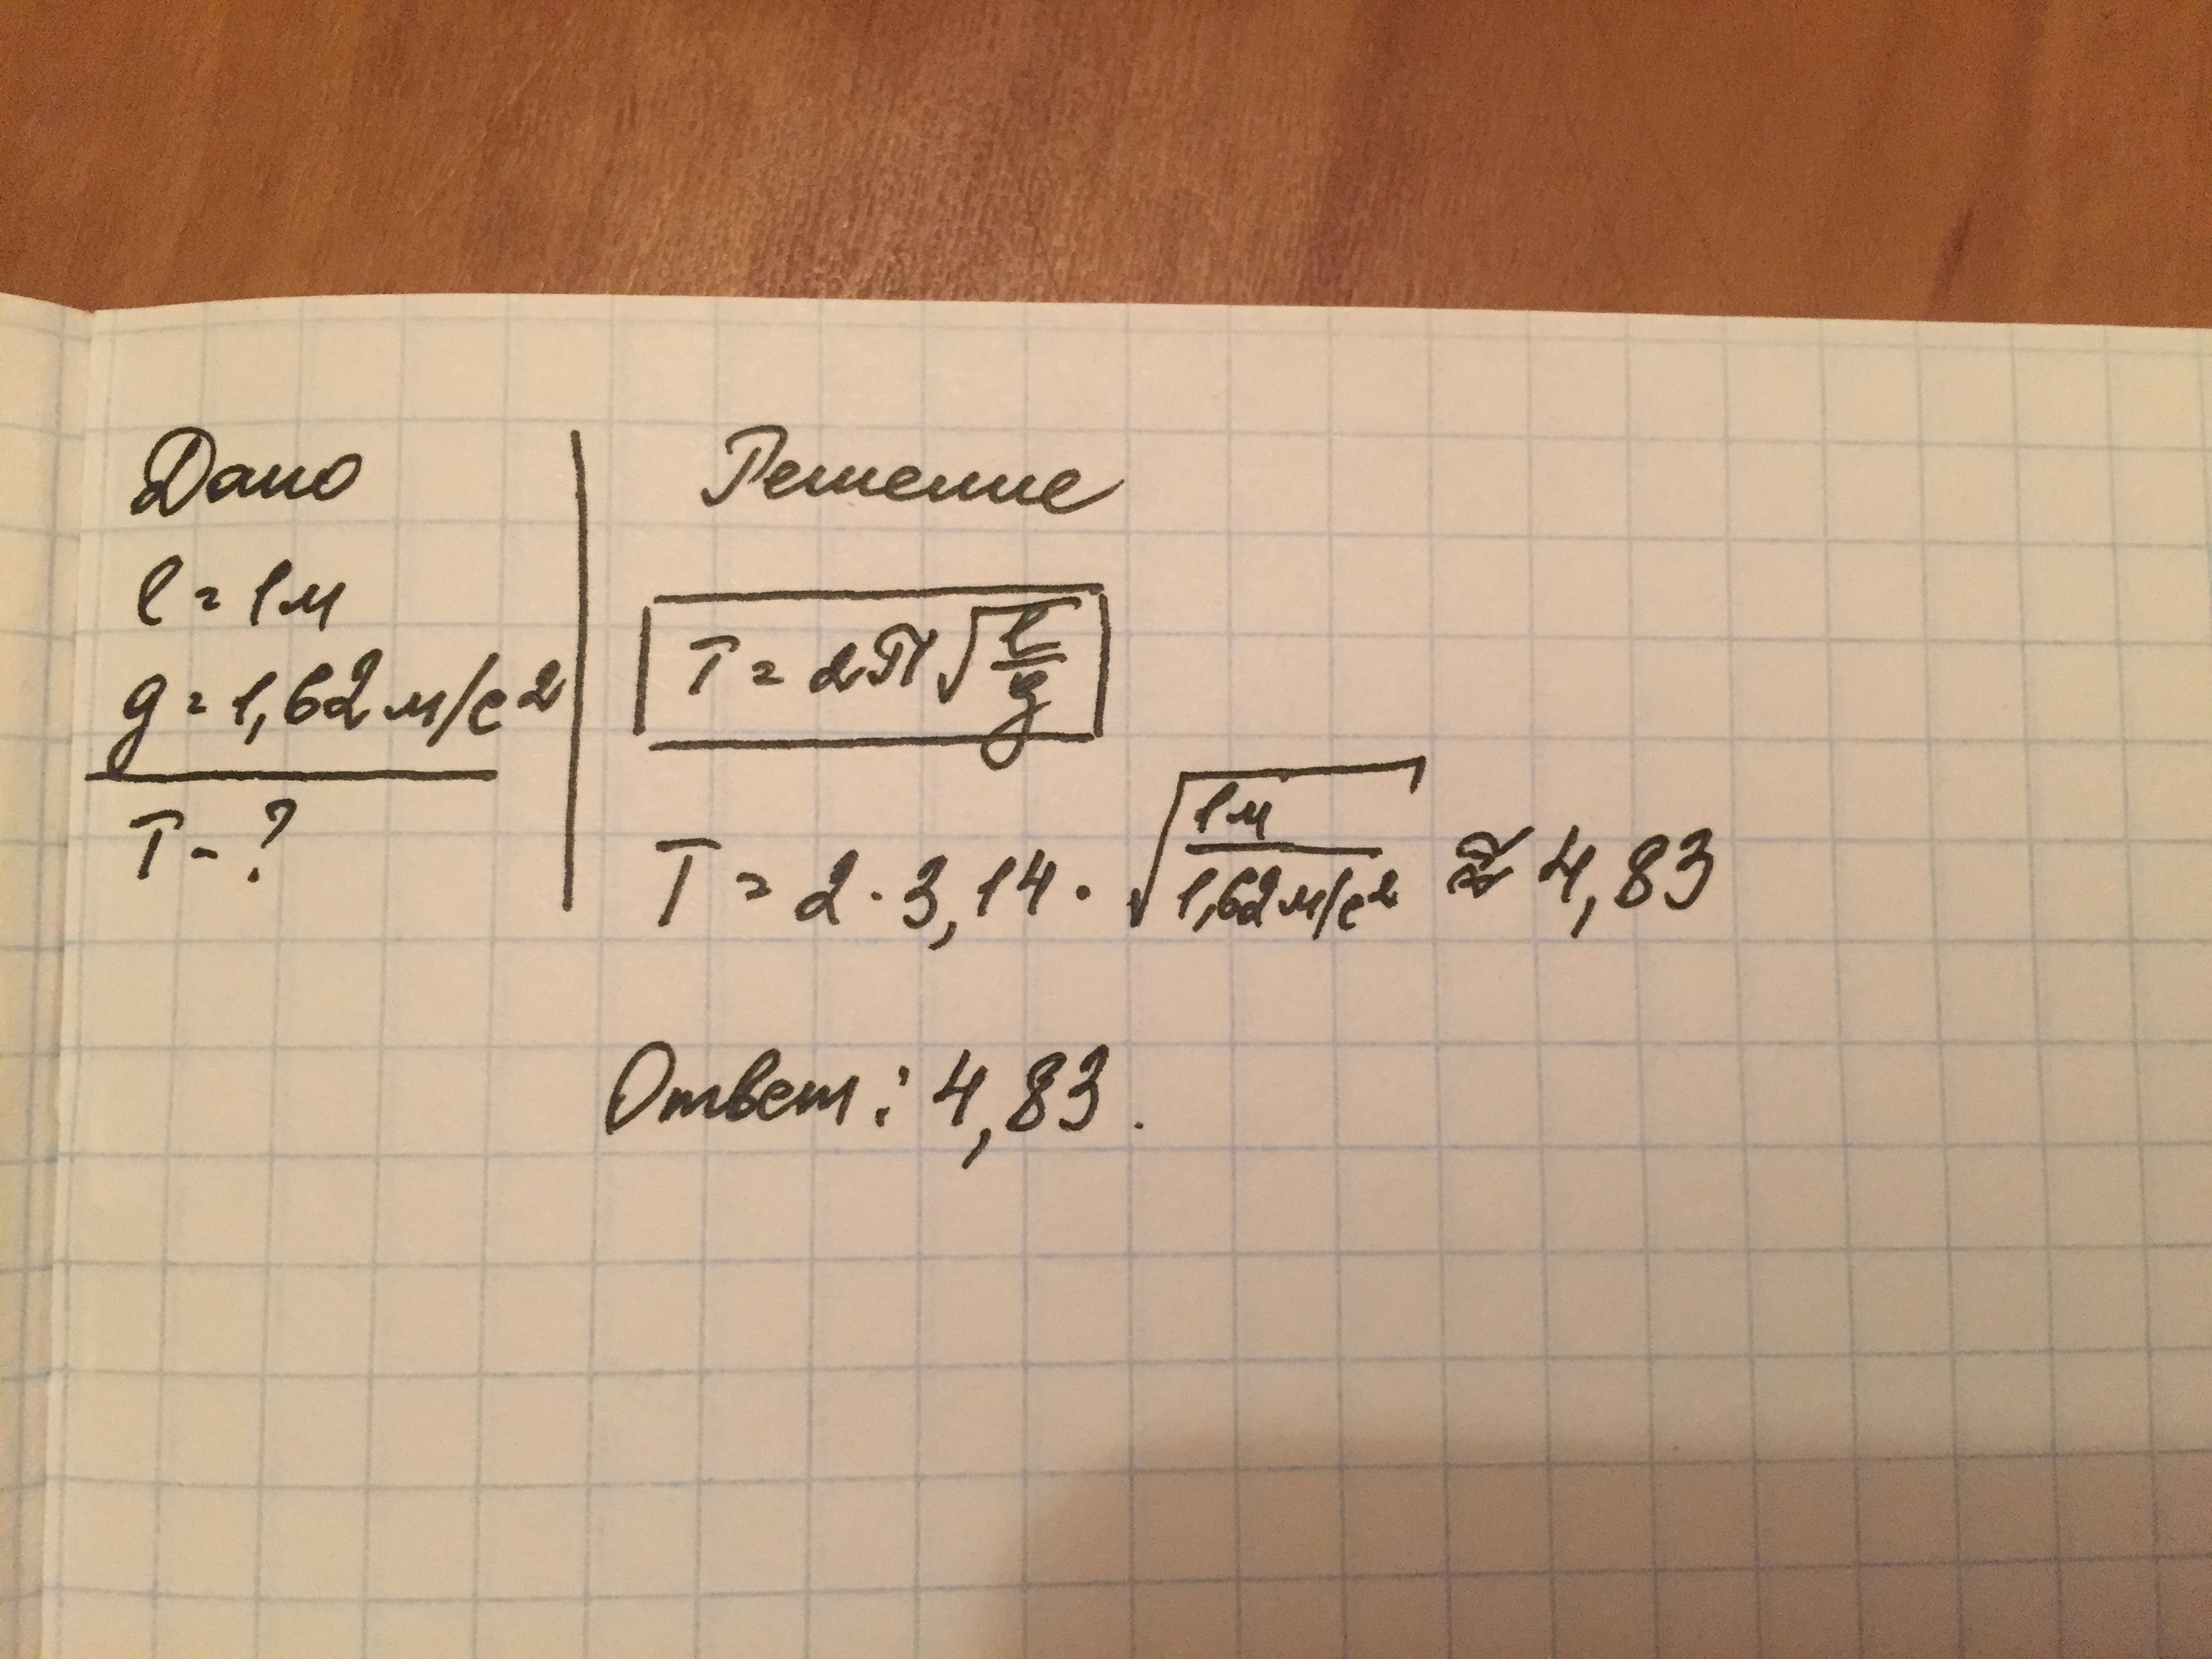 Дано
l = 1м
g = 1,62 м/с²
T - ?
Решение
T = 2π√(l/g)
T = 2 · 3,14 · √(1м/1,62 м/с²) ≈ 4,83
Ответ: 4,83.